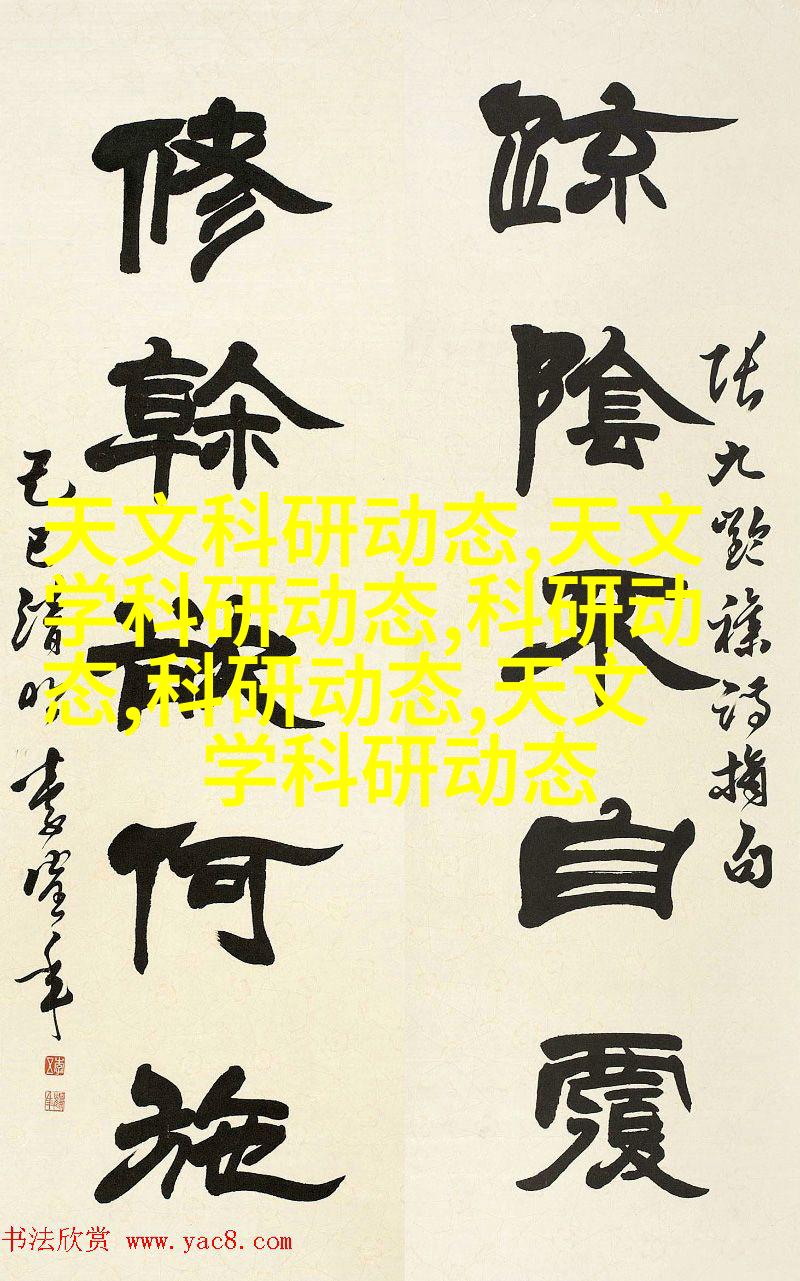 疎陰不自覆
張九齡雜詩摘句
修榦欲何施
己巳清明
天文科研动态,天文
学科研动态,科研动
态,科研动态,天文
学科研动态
书法欣赏 www.yac8.com